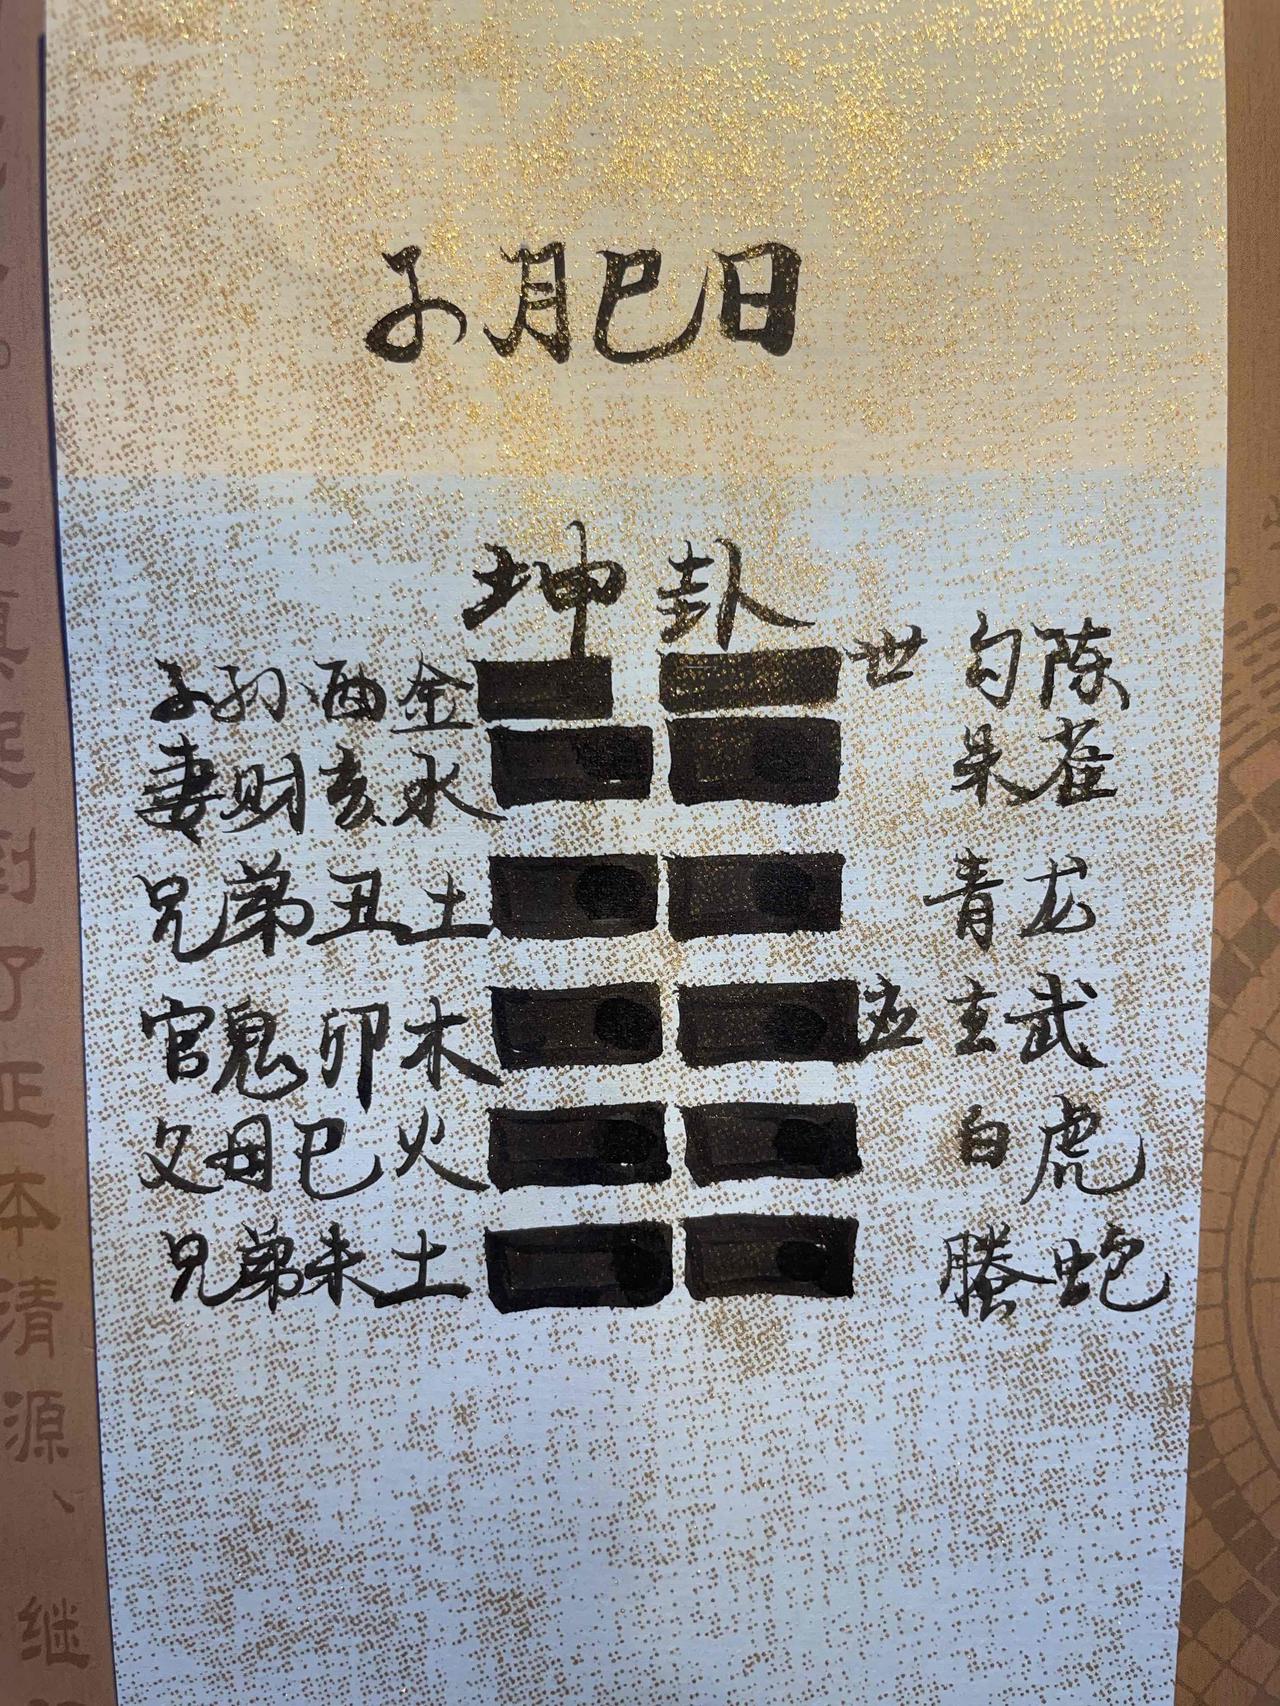 子月巳日
坤卦
子孙酉金 世 勾陈
妻财亥水 朱雀
兄弟丑土 青龙
官鬼卯木 应 玄武
父母巳火 白虎
兄弟未土 螣蛇
了正本清源、继